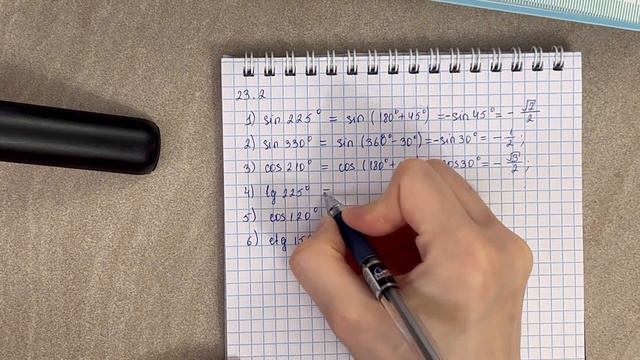 23.2
1) sin 225° = sin (180°+45°) = -sin 45° = - √2/2
2) sin 330° = sin (360°-30°) = -sin 30° = - 1/2 ;
3) cos 210° = cos (180°+ cos 30° = - √3/2 ;
4) tg 225° =
5) cos 120°
6) ctg 15